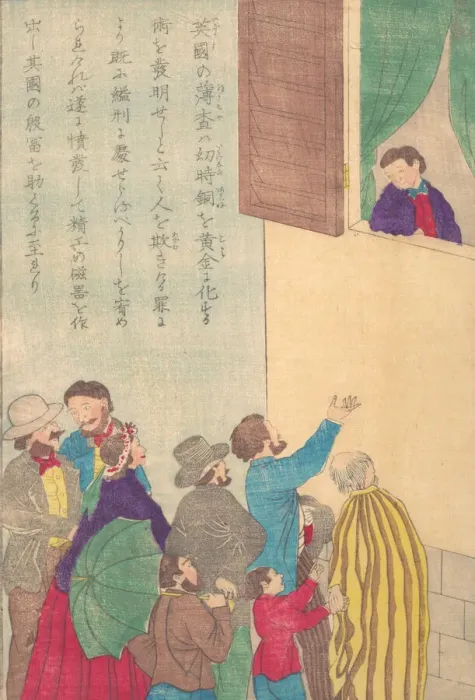 英國の薄査ハ幼時銅を黄金に化する
術を發明せしと云て人を欺きける罪に
より既に縊刑に處せらるべかりしを宥め
られけれバ遂に憤發して精工の磁器を作
出し其國の殷富を助くるに至れり